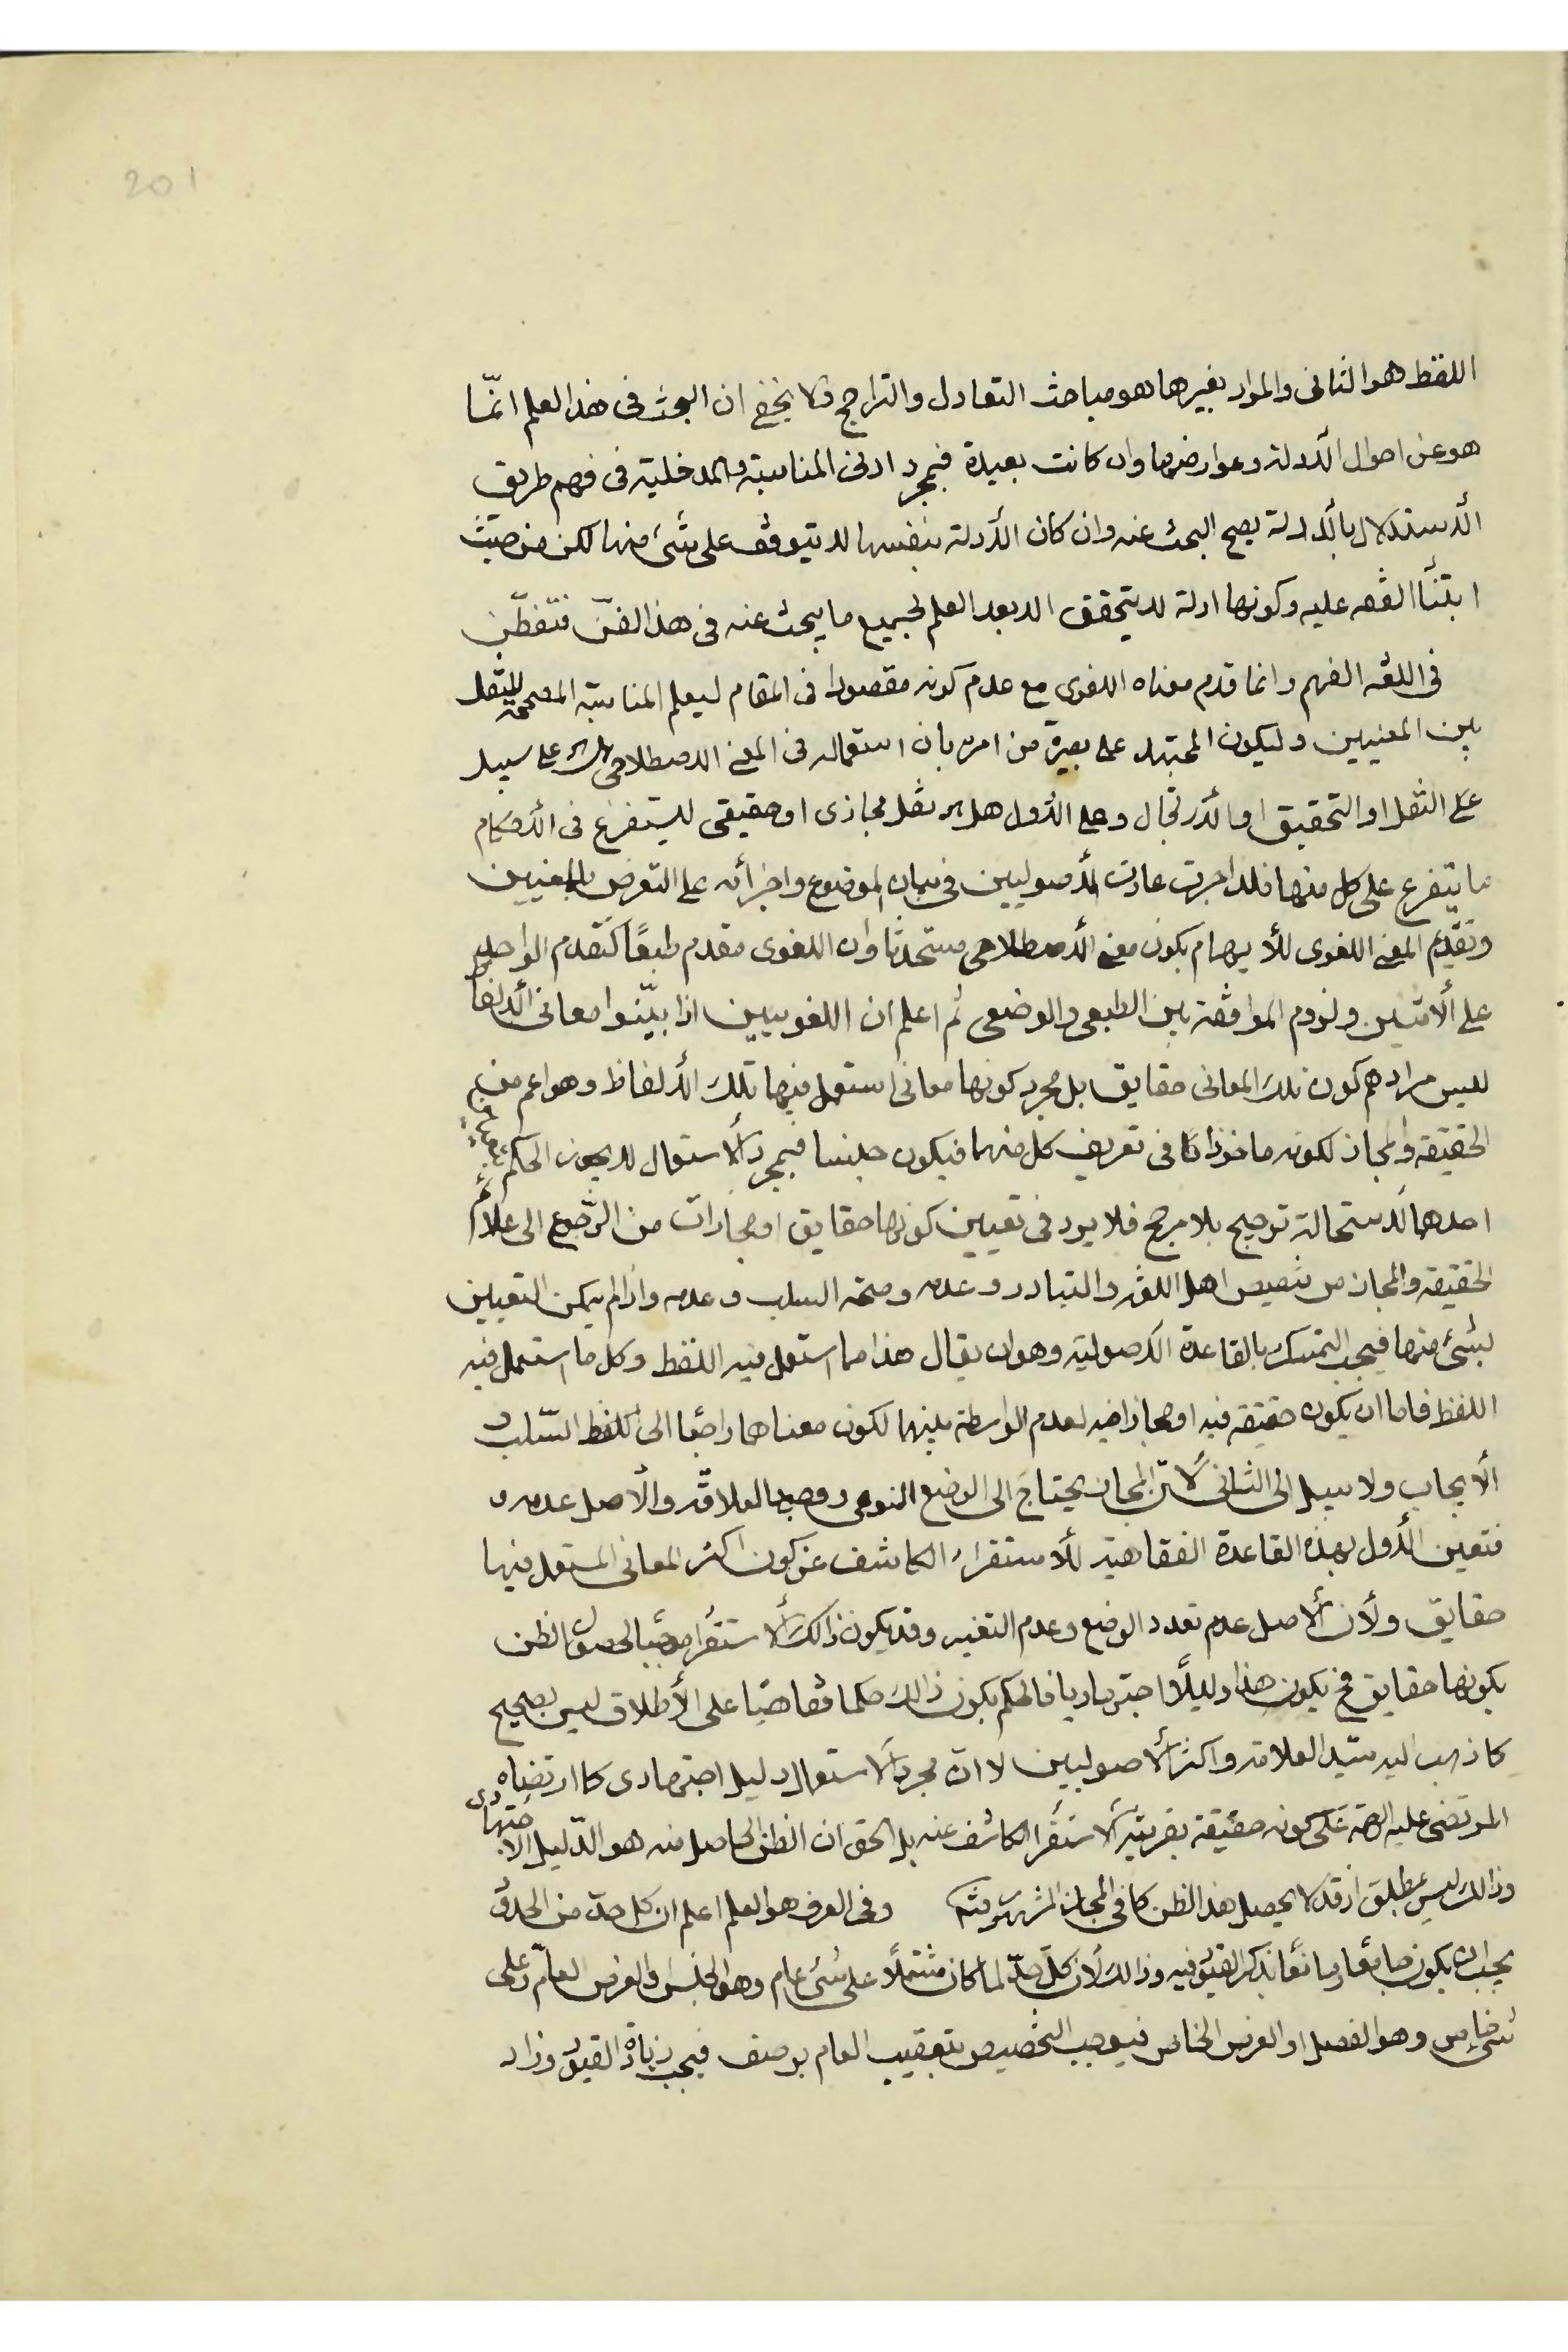 201
اللفظ هو الثانى والمراد بغيرها هو مباحث التعادل والتراجح ولا يخفى ان البحث فى هذا العلم انّما
هو عن احوال الأدلة وعوارضها وان كانت بعيدة فبمجرد ادنى المناسبة والمدخلية فى فهم طريق
الأستدلال بالأدلة يصح البحث عنه وان كان الأدلة بنفسها لا يتوقف على شئ منها لكن من حيث
ابتنأ الفقه عليه وكونها ادلة لا يتحقق الا بعد العلم بجميع ما يبحث عنه فى هذا الفنّ فتفطّن
فى اللغة الفهم وانما قدم معناه اللغوى مع عدم كونه مقصودا فى المقام ليعلم المناسبة المصححة للنقل
بين المعنيين وليكون المجتهد على بصيرة من امره بان استعماله فى المعنى الاصطلاحى على سبيل
على النقل او التحقيق او الأرتجال وعلى الأول هل هو نقل مجازى او حقيقى ليتفرع فى الأحكام
ما يتفرع على كل منها فلذا جرت عادت الأصوليين فى بيان الموضوع واجزأئه على التعرض بالمعنيين
وتقديم المعنى اللغوى للأيهام بكون معنى الأصطلاحى مستحدثا وان اللغوى مقدم طبعًا كتقدم الواحد
على الأثنين ولزوم الموافقة بين الطبعى والوضعى ثم اعلم ان اللغويين اذا بيّنوا معانى الألفاظ
ليس مرادهم كون تلك المعانى حقايق بل مجرد كونها معانى استعمل فيها تلك الألفاظ وهو اعم من
الحقيقة والمجاز لكونه ماخوذا فى تعريف كل منهما فيكون جنسا فبمجرد الأستعمال لا يجوز الحكم
احدهما لأستحالة ترجيح بلا مرجح فلا بد فى تعيين كونها حقايق او مجازات من الرّجوع الى علائم
الحقيقة والمجاز من تنصيص اهل اللغة والتبادر وعدمه وصحة السلب وعدمه واذا لم يكن التعيين
بشئ منها فيجب التمسك بالقاعدة الأصولية وهو ان يقال هذا مما استعمل فيه اللفظ وكل ما استعمل فيه
اللفظ فاما ان يكون حقيقة فيه او مجازا فيه لعدم الواسطة بينهما لكون معناهما راجعًا الى كلفظ السّلب و
الأيجاب ولا سبيل الى الثانى لأنّ المجاز يحتاج الى الوضع النوعى ووجود العلاقة والأصل عدمه
فتعين الأول بهذه القاعدة الفقاهية للأستقراء الكاشف عن كون اكثر المعانى المستعمل فيها
حقايق ولأن الأصل عدم تعدد الوضع وعدم التغير وقد يكون ذالك الأستقرأ موجبًا لحصول الظن
بكونها حقايق فح يكون هذا دليلاً اجتهاديا فالحكم بكون ذالك حكما فقاهيّا على الأطلاق ليس بصحيح
كما ذهب اليه سيّد العلامة واكثر الأصوليين لا انّ مجرد الأستعمال دليل اجتهادى كما ارتضاه
المرتضى عليه الرحمة على كونه حقيقة بقرينة الأستقرأ الكاشف عنه بل الحق ان الظن الحاصل منه هو الدّليل الأجتهادى
وذالك ليس بمطلق اذ قد لا يحصل هذا الظن كما فى المجاز المشهور وفى العرف هو العلم اعلم ان كل حدّ من الحدود
يجب ان يكون جامعًا ومانعًا بذكر القيود فيه وذالك لأن كلّ حدّ لما كان مشتملاً على شئ عام وهو الجنس او العرض العامّ وعلى
شئ خاص وهو الفصل او العرض الخاص فيوجب التخصيص بتعقيب العام بوصف فيجب زيادة القيود وزاد